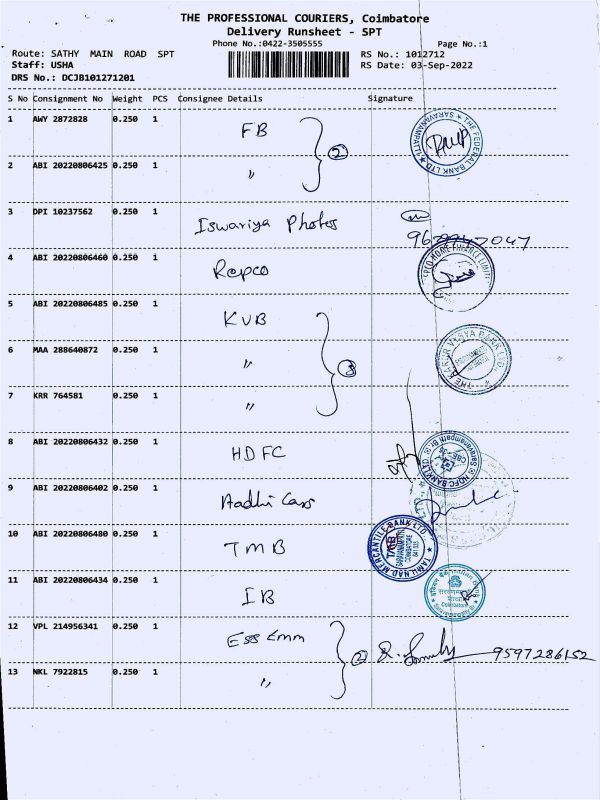 THE PROFESSIONAL COURIERS, Coimbatore
Delivery Runsheet - SPT
Phone No.:0422-3505555 Page No.:1
Route: SATHY MAIN ROAD SPT RS No.: 1012712
Staff: USHA RS Date: 03-Sep-2022
DRS No.: DCJB101271201
S No Consignment No Weight PCS Consignee Details Signature
1 AWY 2872828 0.250 1 FB 2 SARAVANAMPATTI THE FEDERAL BANK LTD
2 ABI 20220806425 0.250 1 〃
3 DPI 10237562 0.250 1 Iswariya Photos
4 ABI 20220806460 0.250 1 Repco HOME FINANCE LIMITED
5 ABI 20220806485 0.250 1 KVB
6 MAA 288640872 0.250 1 〃 3 THE KARUR VYSYA BANK LTD
7 KRR 764581 0.250 1 〃
8 ABI 20220806432 0.250 1 HDFC HDFC BANK LTD
9 ABI 20220806402 0.250 1 Aadhi Cars
10 ABI 20220806480 0.250 1 TMB TAMILNAD MERCANTILE BANK LTD. TMB
11 ABI 20220806434 0.250 1 IB Coimbatore
12 VPL 214956341 0.250 1 Ess Emm 2 9597286152
13 NKL 7922815 0.250 1 〃